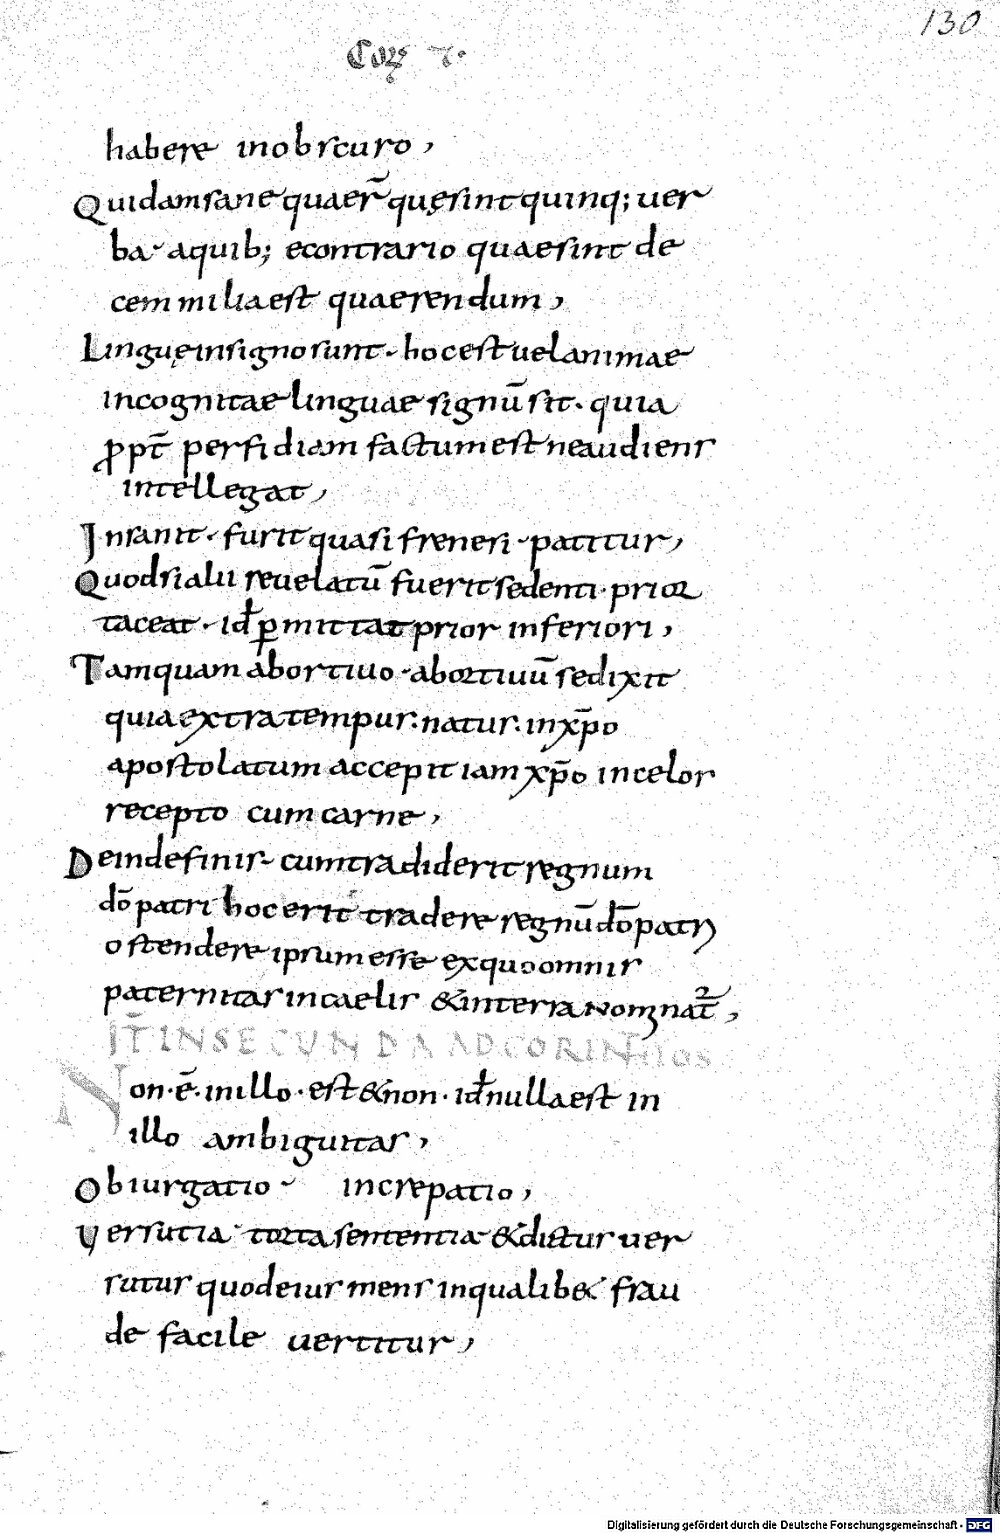 130
Cor̄ 7.
habere in obscuro,
Quidam sane quaer̄ quę sint quinq; uer
ba· a quib; econtrario quae sint de
cem milia est quaerendum,
Linguę in signo sunt· hoc est uel animae
incognitae linguae signū sit· quia
ꝓpt̄ perfidiam factum est ne audiens
intellegat,
Insanit· furit quasi frenesi· patitur,
Quod si alii reuelatū fuerit sedenti· prior
taceat· id̄ ꝑmittat prior inferiori,
Tamquam abortiuo· abortiuū se dixit
quia extra tempus· natus· in xp̄o
apostolatum accepit iam xp̄o in celos
recepto cum carne,
Deinde finis· cum tradiderit regnum
dō patri hoc erit tradere regnū dō patri
ostendere ipsum esse ex quo omnis
paternitas in caelis & in terra nominat̄,
IT̄ IN SECUNDA AD CORINTHIOS
Non· ē· in illo· est & non· id̄ nulla est in
illo ambiguitas,
Obiurgatio· increpatio,
Uersutia· torta sententia· & dictur uer
sutus quod eius mens in qualib& frau
de facile uertitur,
Digitalisierung gefördert durch die Deutsche Forschungsgemeinschaft - DFG